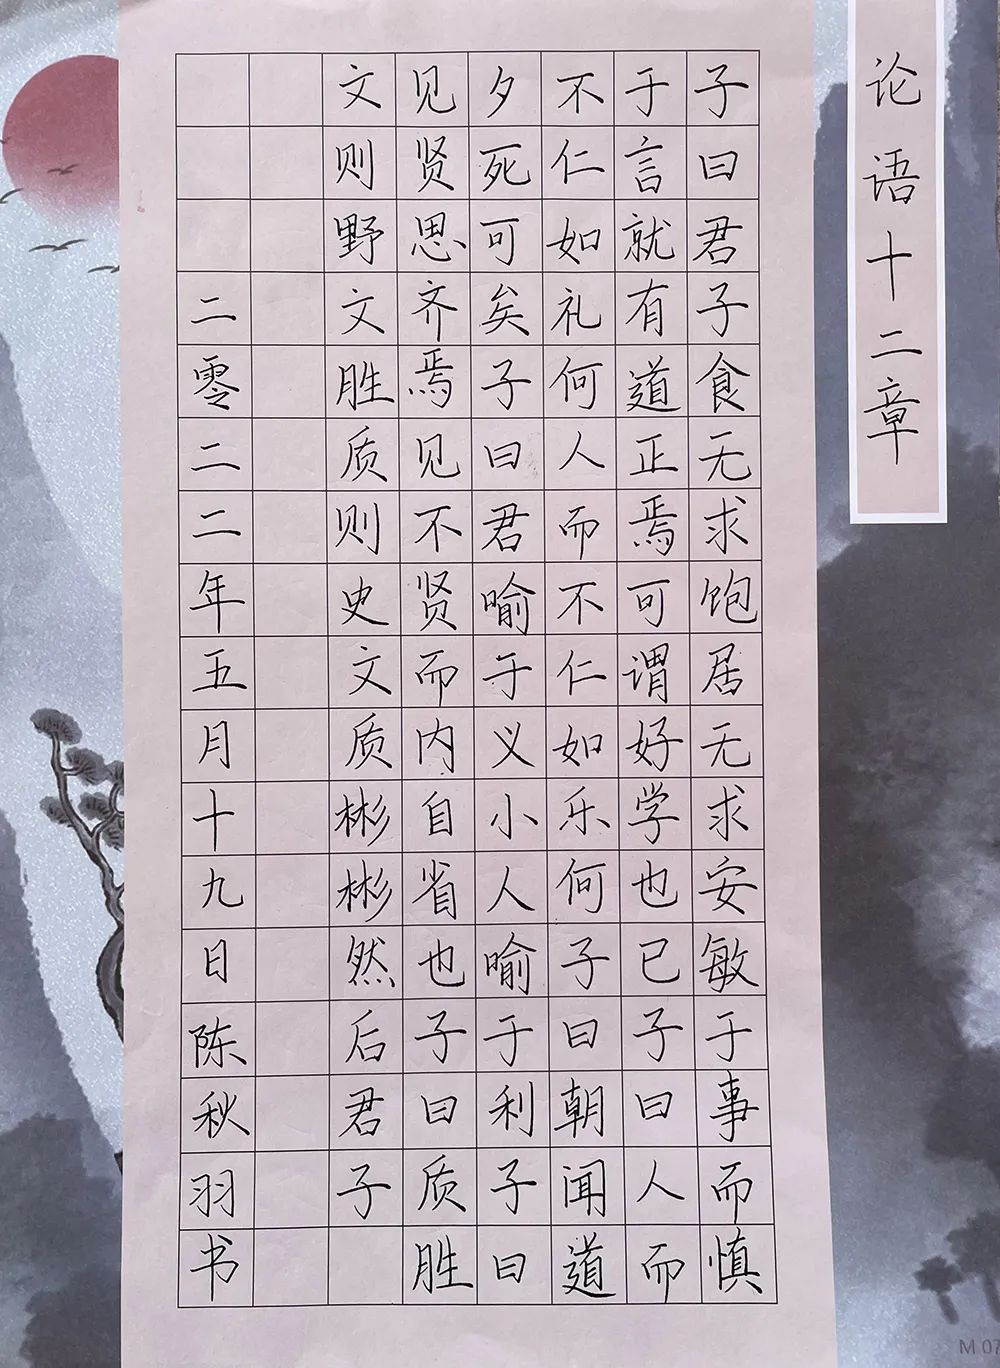 论语十二章
子曰君子食无求饱居无求安敏于事而慎
于言就有道正焉可谓好学也已子曰人而
不仁如礼何人而不仁如乐何子曰朝闻道
夕死可矣子曰君喻于义小人喻于利子曰
见贤思齐焉见不贤而内自省也子曰质胜
文则野文胜质则史文质彬彬然后君子
二零二二年五月十九日陈秋羽书
M 07